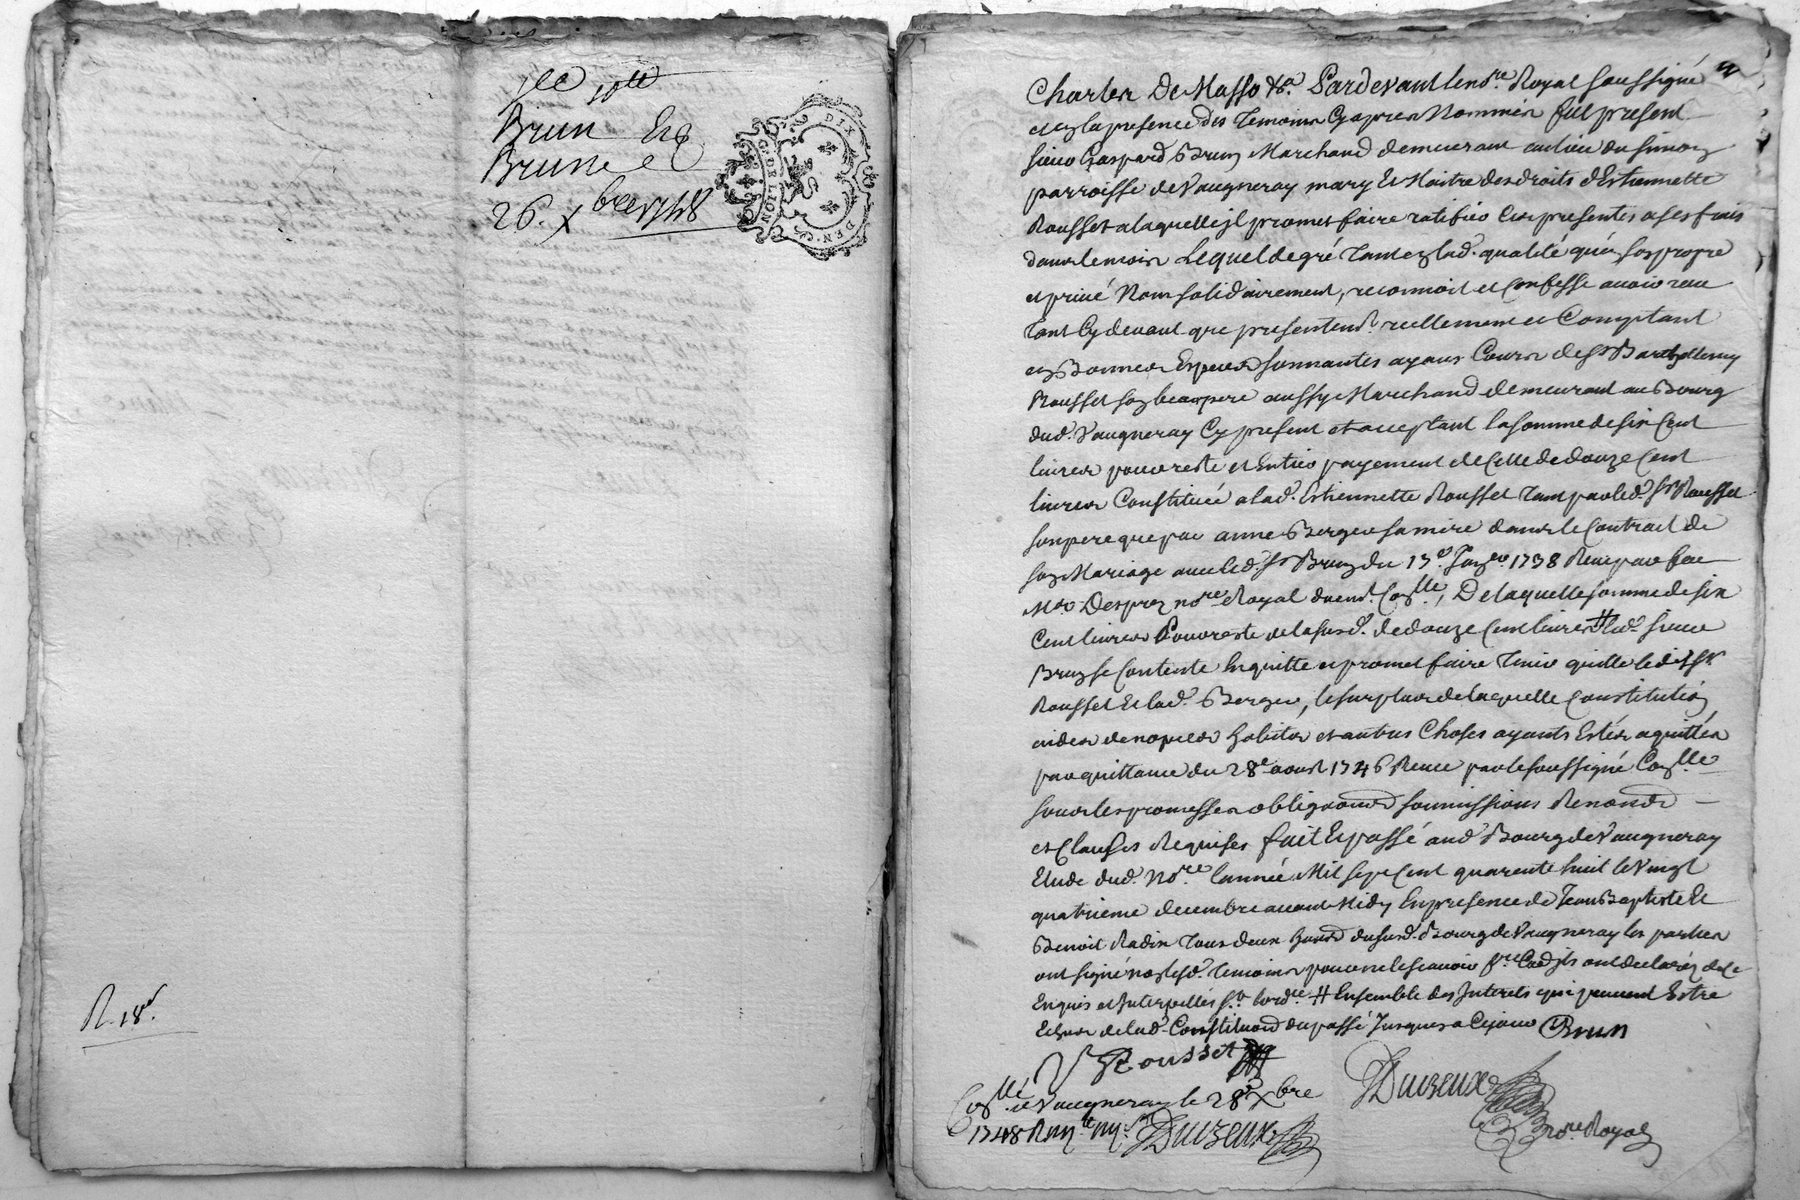 Brun Et
Brun
26. xbre 1748
DIX DEN.
G. DE LION
R. 18s.
Charles De Masso &a. Pardevant le nore. Royal soussigné
et en la presence des Temoins Cyapres Nommés fut present
sieur Gaspard Brun Marchand demeurant au lieu du simon
parroisse de Vaugneray mary Et Maitre des droits d'Estiennette
Rousset a laquelle jl promet faire ratifier Ces presentes a ses frais
dans le mois Lequel de gré Tant en lad. qualité qu'en son propre
et privé Nom solidairement, reconnoit et Confesse avoir reçu
Tant Cy devant que presentemt. reellement et Comptant
en Bonnes Especes sonnantes ayans Cours de Sr Barthellemy
Rousset son beaupere aussy Marchand demeurant au Bourg
dud. Vaugneray Cy present et acceptant la somme de six Cent
livres pour reste et Entier payement de Celle de douze Cent
livres Constituée a lad. Estiennette Rousset Tant par led. Sr Rousset
son pere que par anne Berger sa mere dans le Contract de
son Mariage avec led. Sr Brun du 13e. Janer 1738 Reçu par feu
Me. Desprez nore. Royal duemt. Conllé, De laquelle somme de six
Cent livres Pour reste de la susd. de douze Cent livres # led. sieur
Brun se Contente En quitte et promet faire Tenir quitte ledit Sr.
Rousset Et lad. Berger, le surplus de laquelle Constitution
aides de nopces habits et autres Choses ayants Estés aquittés
par quittance du 28e aoust 1746 Reçue par le soussigné Conllé
sous les promesses obligaons soumissions Renonds
et Clauses Requises fait Et passé aud. Bourg de Vaugneray
Etude dud. Nore. l'année Mil sept Cent quarente huit le Vingt
quatrieme decembre avant Midy En presence de Jean Baptiste Et
Benoit Radix Tous deux du susd. Bourg de Vaugneray les parties
ont signé non lesd. Temoins pour ne le scavoir jls ont declaréz de Ce
Enquis et Interpellés St. lordre # Ensemble des Interets qui peuvent Estre
Echus de lad. Constituaon du passé Jusques a Ce jour Brun
Rousset
Duizeux
nore Royal
Conllé a Vaugneray le 28e xbre
1748 Duizeux